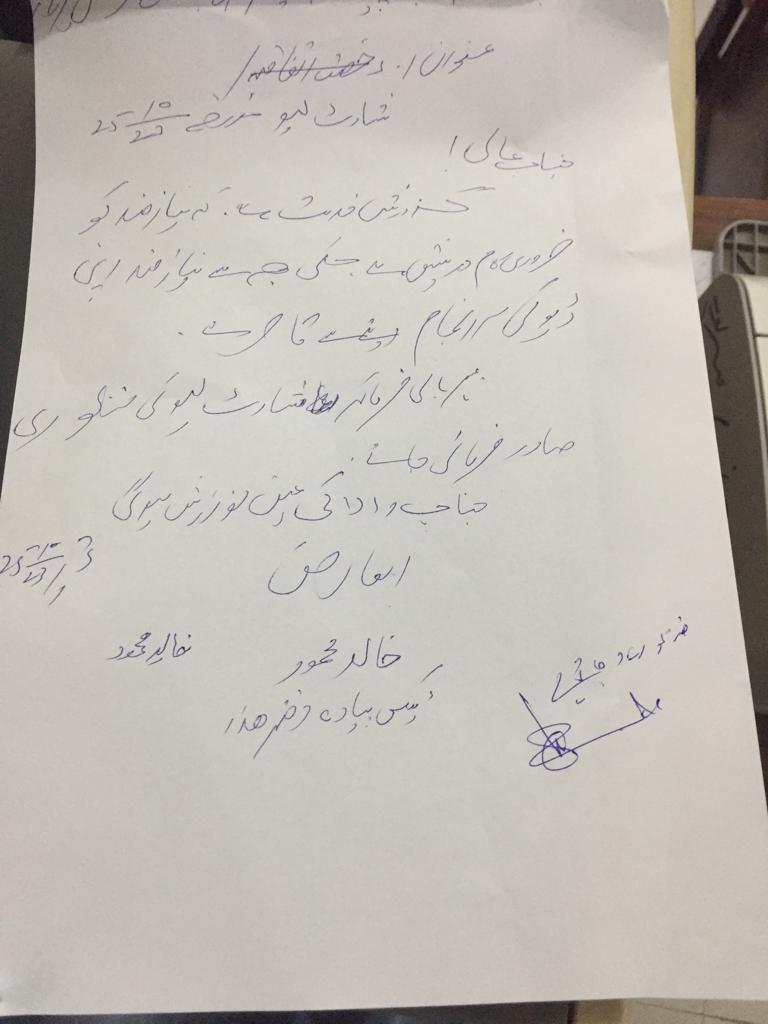 عنوان:۔ رخصت اتفاقیہ/
شارٹ لیو مورخہ 23/10 25
جناب عالی!
گذارش خدمت ہے۔ کہ نیازمند کو
ضروری کام درپیش ہے جسکی وجہ سے نیازمند اپنی
ڈیوٹی سرانجام دینے سے قاصر ہے۔
مہربانی فرما کر شارٹ لیو کی منظوری
صادر فرمائی جائے۔
جناب والا کی عین نوازش ہوگی
العارض
23/10 25
خالد محمود
خالد محمود
نائب پیادہ دفتر ھذا